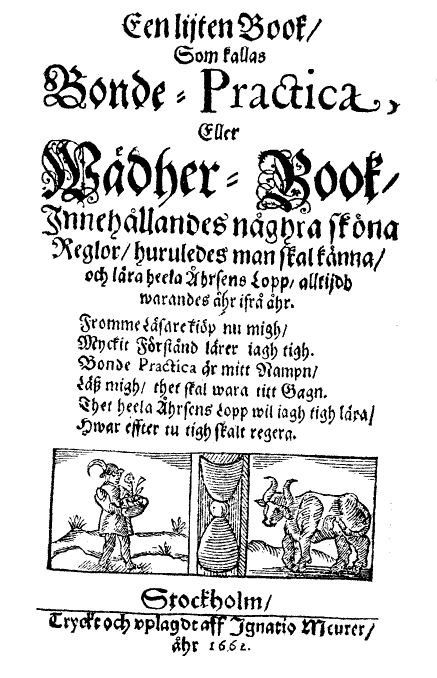 Een lijten Book/
Som kallas
Bonde-Practica,
Eller
Wädher-Book/
Innehållandes någhra sköna
Reglor/ huruledes man skal känna/
och lära heela Åhrsens Lopp/ alltijdh
warandes åhr ifrå åhr.
Fromme Läsare kiöp nu migh/
Myckit Förstånd lärer iagh tigh.
Bonde Practica är mitt Nampn/
Läß migh/ thet skal wara titt Gagn.
Thet heela Åhrsens Lopp wil iagh tigh lära/
Hwar effter tu tigh skalt regera.
Stockholm/
Tryckt och vplagdt aff Ignatio Meurer/
åhr 1662.